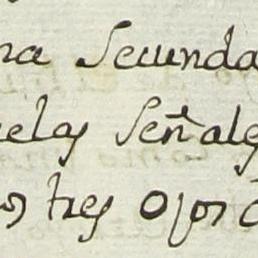 na Secunda
elas Señales
os tres ojos